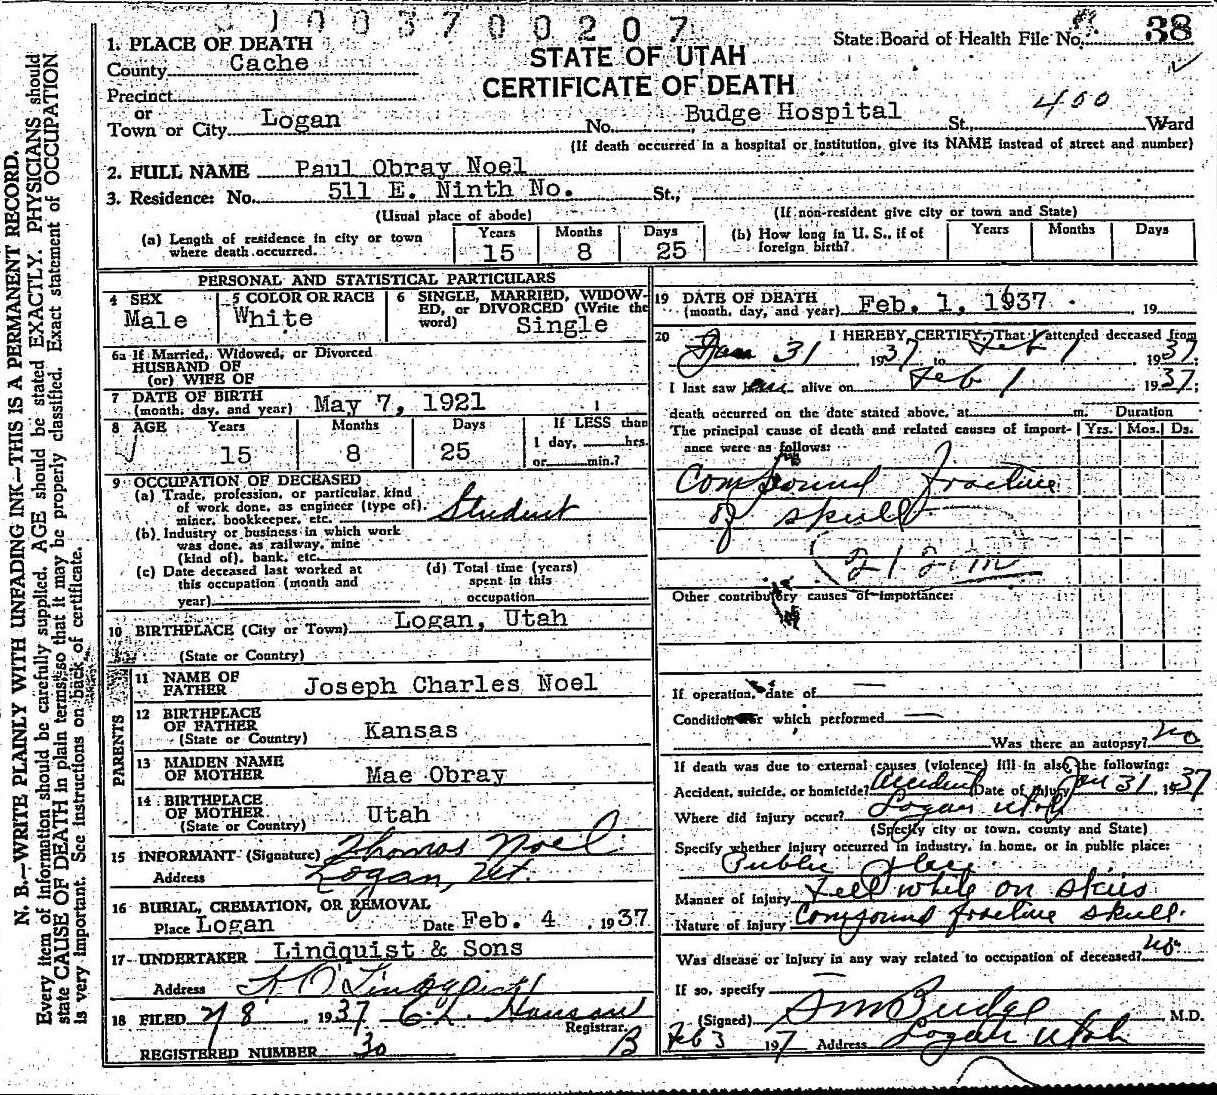 0 0 3 7 0 0 2 0 7
State Board of Health File No. 38
1. PLACE OF DEATH
STATE OF UTAH
County Cache
CERTIFICATE OF DEATH
Precinct
or
Town or City Logan No. Budge Hospital St. 400 Ward
(If death occurred in a hospital or institution, give its NAME instead of street and number)
2. FULL NAME Paul Obray Noel
3. Residence: No. 511 E. Ninth No. St.,
(Usual place of abode) (If non-resident give city or town and State)
(a) Length of residence in city or town where death occurred. Years 15 Months 8 Days 25
(b) How long in U. S., if of foreign birth? Years Months Days
N. B.—WRITE PLAINLY WITH UNFADING INK—THIS IS A PERMANENT RECORD.
Every item of information should be carefully supplied. AGE should be stated EXACTLY. PHYSICIANS should
state CAUSE OF DEATH in plain terms, so that it may be properly classified. Exact statement of OCCUPATION
is very important. See instructions on back of certificate.
PERSONAL AND STATISTICAL PARTICULARS
4 SEX Male
5 COLOR OR RACE White
6 SINGLE, MARRIED, WIDOWED, or DIVORCED (Write the word) Single
6a If Married, Widowed, or Divorced
HUSBAND OF
(or) WIFE OF
7 DATE OF BIRTH
(month, day, and year) May 7, 1921
8 AGE Years 15 Months 8 Days 25
If LESS than
1 day, hrs.
or min.?
9 OCCUPATION OF DECEASED
(a) Trade, profession, or particular kind
of work done, as engineer (type of),
miner, bookkeeper, etc. Student
(b) Industry or business in which work
was done, as railway, mine
(kind of), bank, etc.
(c) Date deceased last worked at
this occupation (month and
year)
(d) Total time (years)
spent in this
occupation
10 BIRTHPLACE (City or Town) Logan, Utah
(State or Country)
PARENTS
11 NAME OF
FATHER Joseph Charles Noel
12 BIRTHPLACE
OF FATHER Kansas
(State or Country)
13 MAIDEN NAME
OF MOTHER Mae Obray
14 BIRTHPLACE
OF MOTHER Utah
(State or Country)
15 INFORMANT (Signature) Thomas Noel
Address Logan, Ut.
16 BURIAL, CREMATION, OR REMOVAL
Place Logan Date Feb. 4, 1937
17 UNDERTAKER Lindquist & Sons
Address
18 FILED 2/8, 1937 C. L. Hanson
Registrar.
REGISTERED NUMBER 30 B
19 DATE OF DEATH
(month, day, and year) Feb. 1, 1937 19
20 I HEREBY CERTIFY, That I attended deceased from
Jan 31 1937 to Feb 1 1937;
I last saw him alive on Feb 1 1937;
death occurred on the date stated above, at m. Duration
The principal cause of death and related causes of importance were as follows: Yrs. Mos. Ds.
Compound fracture
of skull
212 m
Other contributory causes of importance:
If operation, date of —
Condition for which performed —
Was there an autopsy? no
If death was due to external causes (violence) fill in also the following:
Accident, suicide, or homicide? Accident Date of injury Jan 31 1937
Where did injury occur? Logan Utah
(Specify city or town, county and State)
Specify whether injury occurred in industry, in home, or in public place:
Public place
Manner of injury Fell while on skiis
Nature of injury Compound fracture skull.
Was disease or injury in any way related to occupation of deceased? no.
If so, specify —
(Signed) S M Budge M.D.
Feb 3 1937 Address Logan Utah